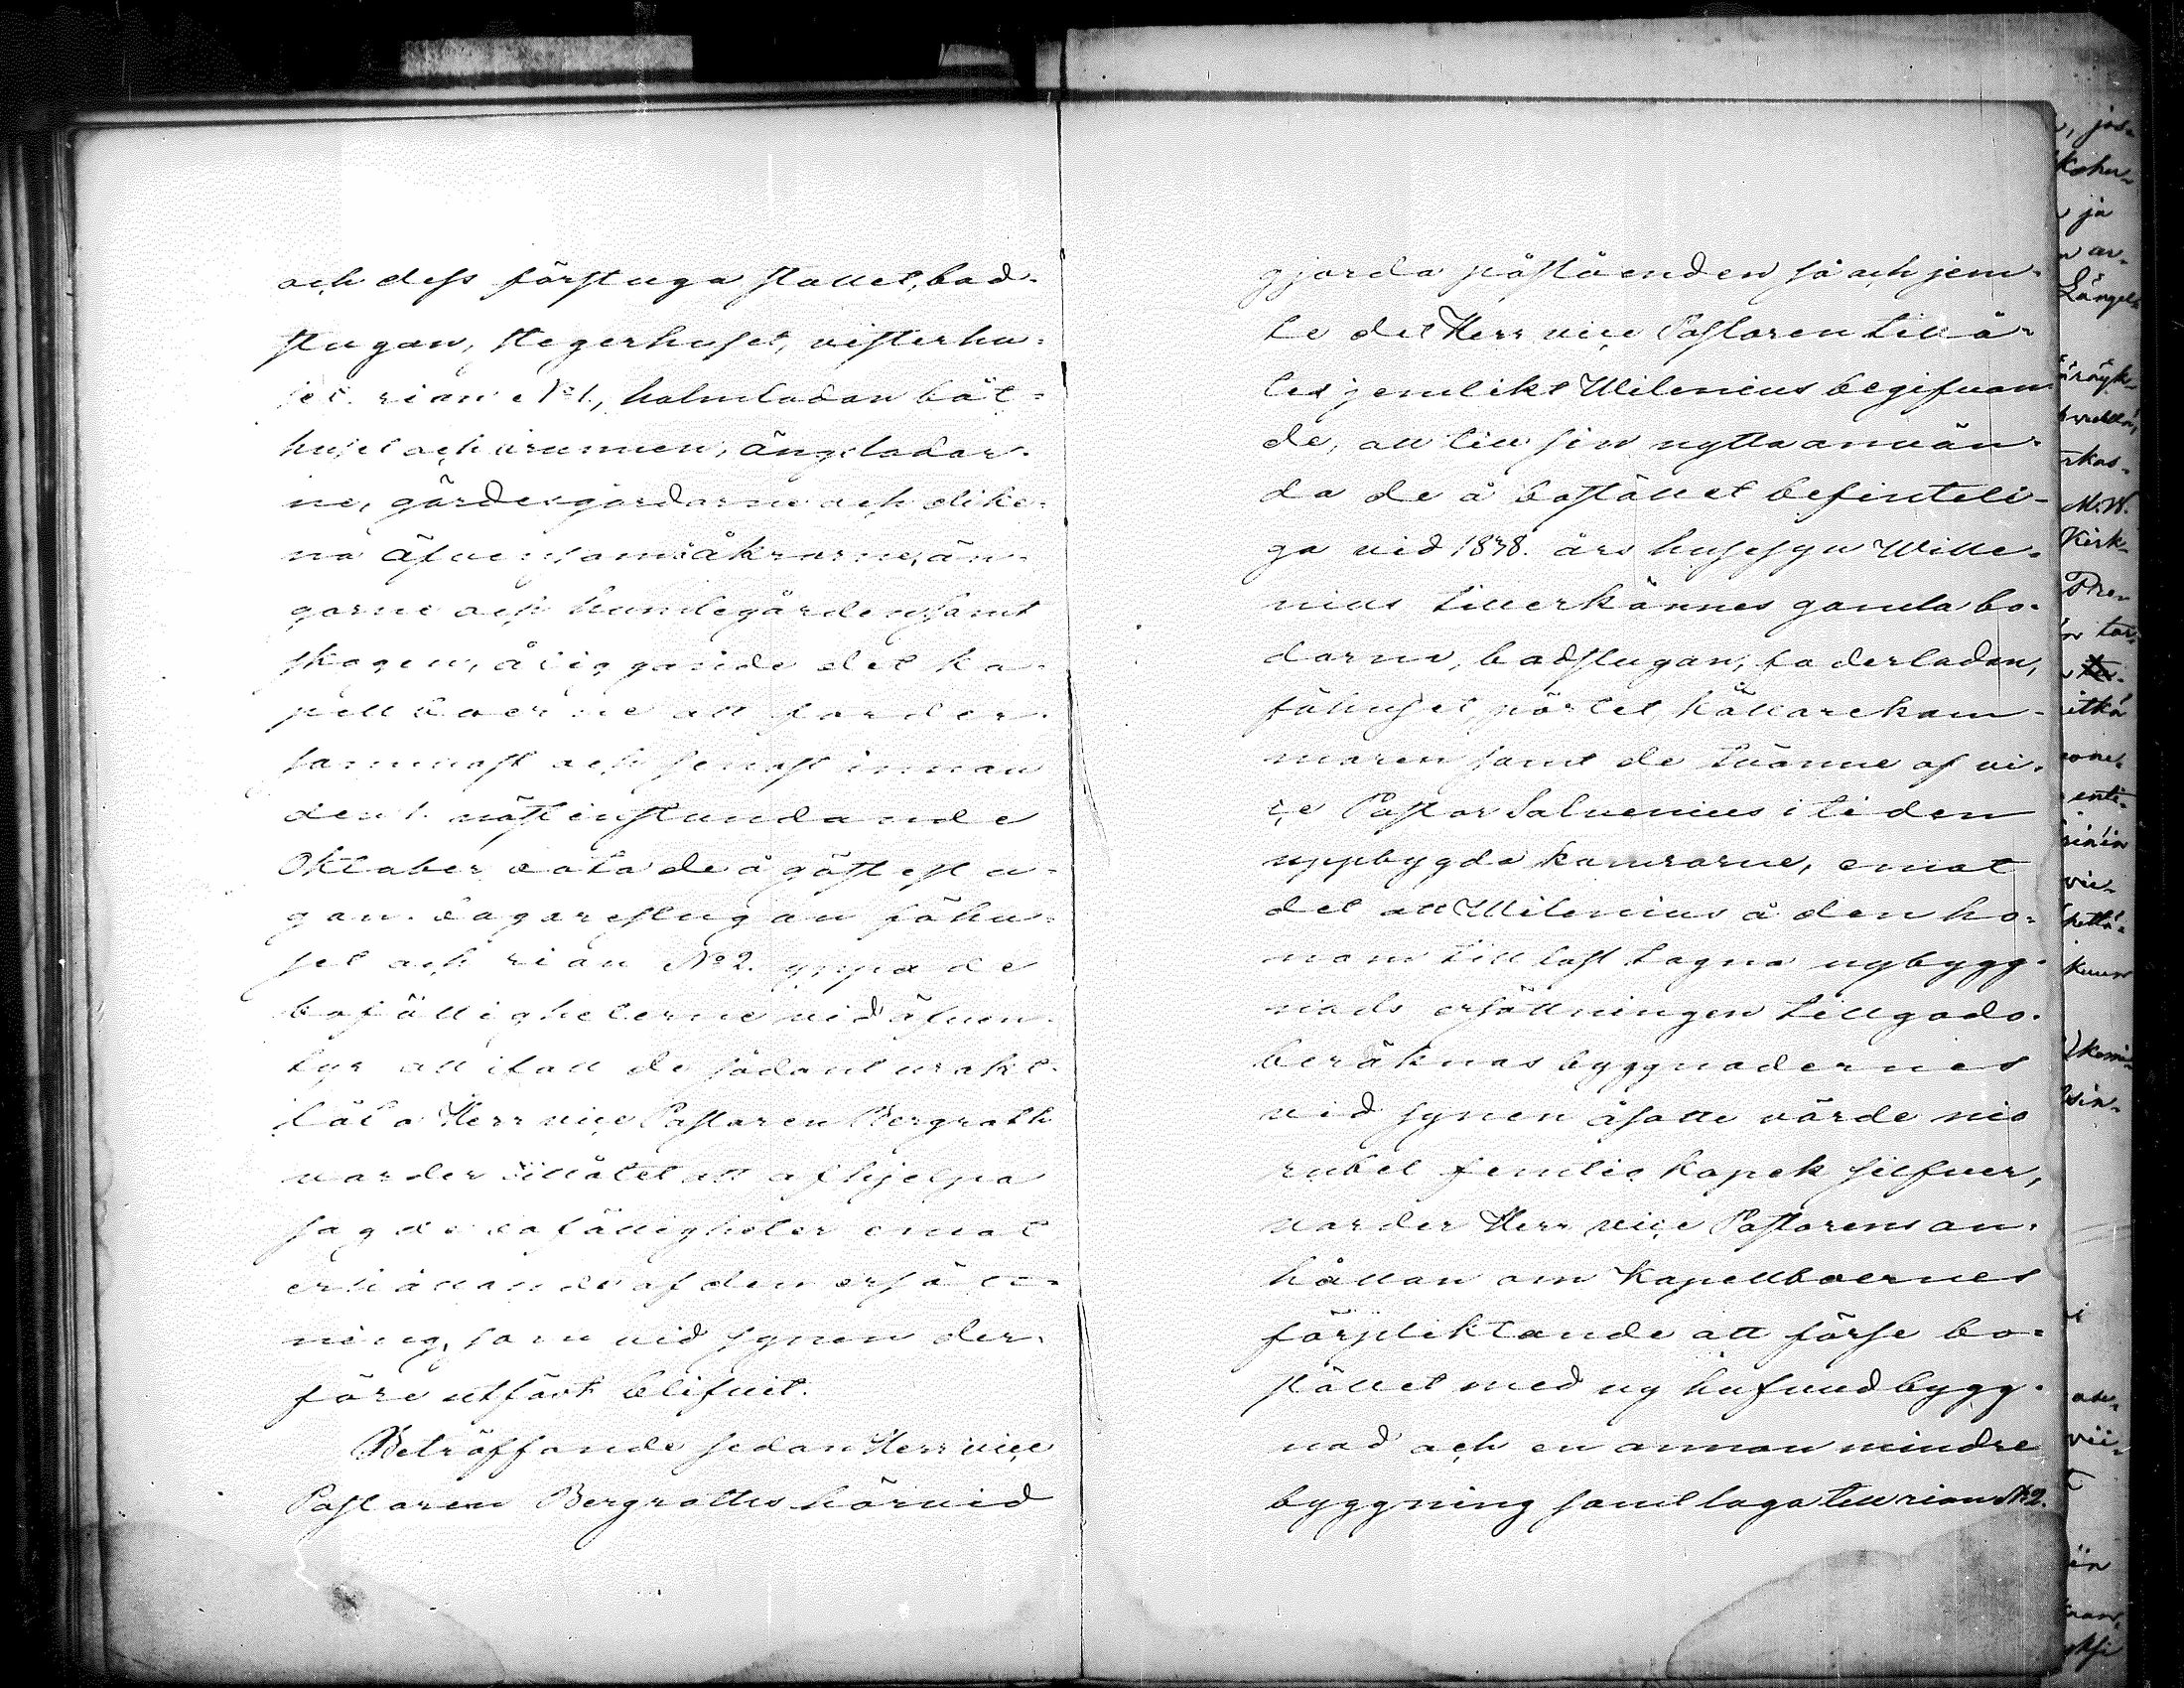 och dess förstuga stallet, bad-
stugan, stegerhuset, visterhu-
set. rian No 1, halmladan båt-
huset och brunnen, ängsladar-
ne, gärdesgårdarne och dike-
na äfvensom åkrarne, än-
garne och humlegården samt
skogen, åliggande det ka-
pellboerne att forder-
sammast och senast innan
den 1. nästinstundande
Oktober bota de å gästestu-
gan. bagarestugan fähu-
set och rian No 2. yppade
bofälligheterne vid äfven-
tyr att ifall de sådant urakt-
låta Herr vice Pastoren Bergroth
varder tillåtet att afhjelpa
sagde bofälligheter emot
erhållande af den ersätt-
ning, som vid synen der-
före utfört blifvit.
Beträffande sedan Herr vice
Pastoren Bergroths härvid
gjorda påståenden så och jem-
te det Herr vice Pastoren tillå-
tes jemlikt Wilenius begifvan
de, att till sin nytta använ-
da de å bostället befinteli-
ga vid 1838. års husesyn Wille-
nius tillerkännes gamla bo-
darne, badstugan, foderladan,
fähuset, pörtet, källarekam-
maren samt de tvänne af vi-
ce Pastor Salvenius i tiden
uppbygda kamrarne, emot
det att Wilenius å den ho-
nom till last tagna nybygg-
nads ersättningen tillgodo-
beräknas byggnadernes
vid synen åsatte värde nio
rubel femtio kopek silfver,
varder Herr vice Pastorens an-
hållan om Kapellboernes
förpliktande att förse bo-
stället med ny hufvudbygg-
nad och en annan mindre
byggning samt laga till rian No 2.